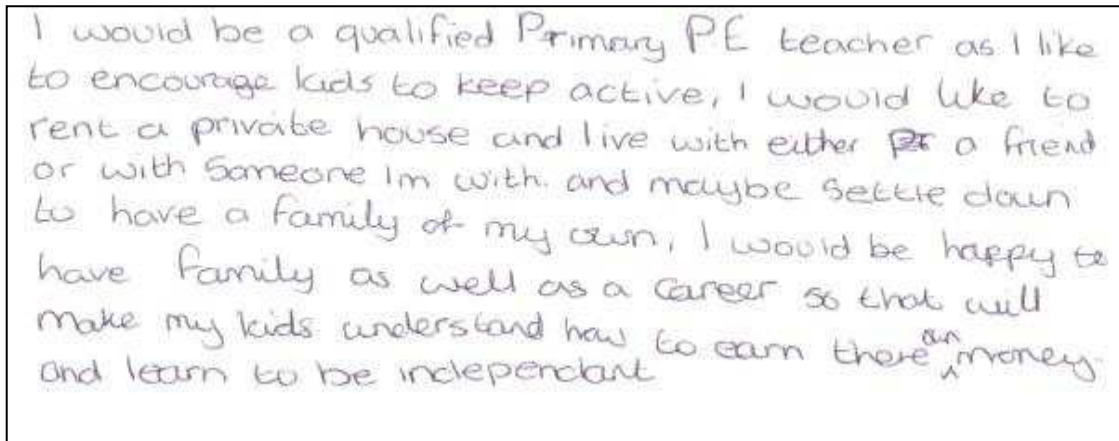 I would be a qualified Primary PE teacher as I like
to encourage kids to keep active, I would like to
rent a private house and live with either a friend
or with someone Im with. and maybe settle down
to have a family of my own, I would be happy to
have family as well as a career so that will
make my kids understand how to earn there own money.
and learn to be independant